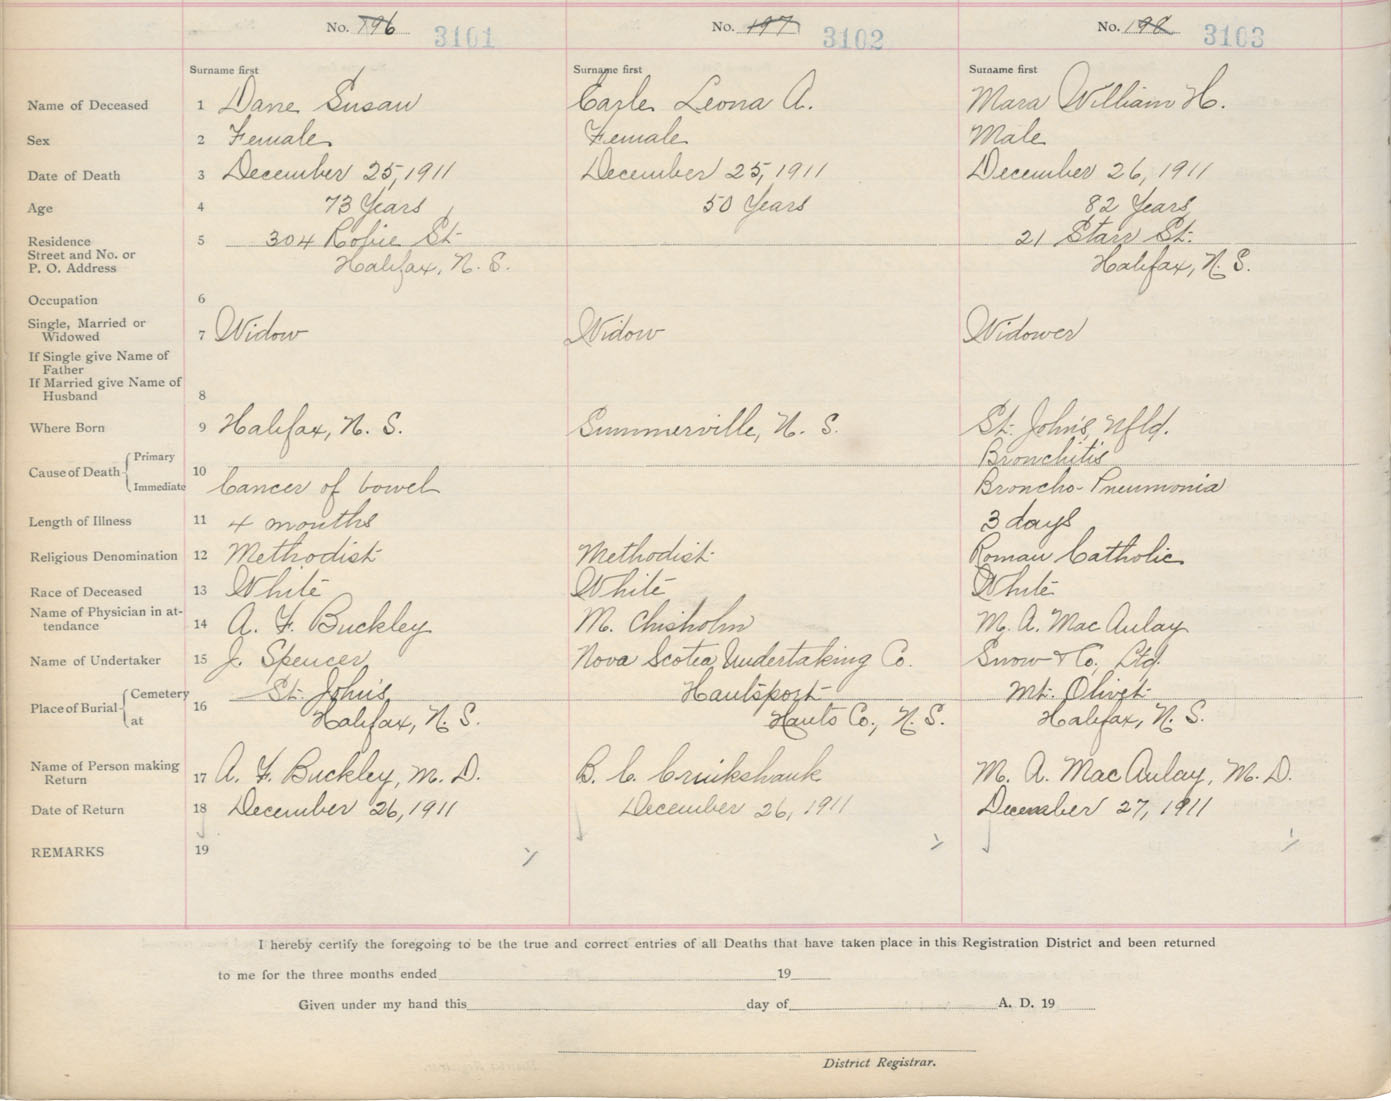 No. 796 3101 No. 197 3102 No. 198 3103
Surname first Surname first Surname first
Name of Deceased 1 Dane Susan Earle Leona A. Mara William H.
Sex 2 Female Female Male
Date of Death 3 December 25, 1911 December 25, 1911 December 26, 1911
Age 4 73 Years 50 Years 82 Years
Residence 5 304 Robie St. 21 Starr St.
Street and No. or
P. O. Address Halifax, N. S. Halifax, N. S.
Occupation 6
Single, Married or
Widowed 7 Widow Widow Widower
If Single give Name of
Father
If Married give Name of
Husband 8
Where Born 9 Halifax, N. S. Summerville, N. S. St. John's, Nfld.
Primary Bronchitis
Cause of Death 10
Immediate Cancer of bowel Broncho-Pneumonia
Length of Illness 11 4 months 3 days
Religious Denomination 12 Methodist Methodist Roman Catholic
Race of Deceased 13 White White White
Name of Physician in at-
tendance 14 A. F. Buckley M. Chisholm M. A. MacAulay
Name of Undertaker 15 J. Spencer Nova Scotia Undertaking Co. Snow & Co. Ltd.
Cemetery St. John's Hantsport Mt. Olivet
Place of Burial 16
at Halifax, N. S. Hants Co., N. S. Halifax, N. S.
Name of Person making
Return 17 A. F. Buckley, M. D. B. C. Cruikshank M. A. MacAulay, M. D.
Date of Return 18 December 26, 1911 December 26, 1911 December 27, 1911
REMARKS 19
I hereby certify the foregoing to be the true and correct entries of all Deaths that have taken place in this Registration District and been returned
to me for the three months ended 19
Given under my hand this day of A. D. 19
District Registrar.